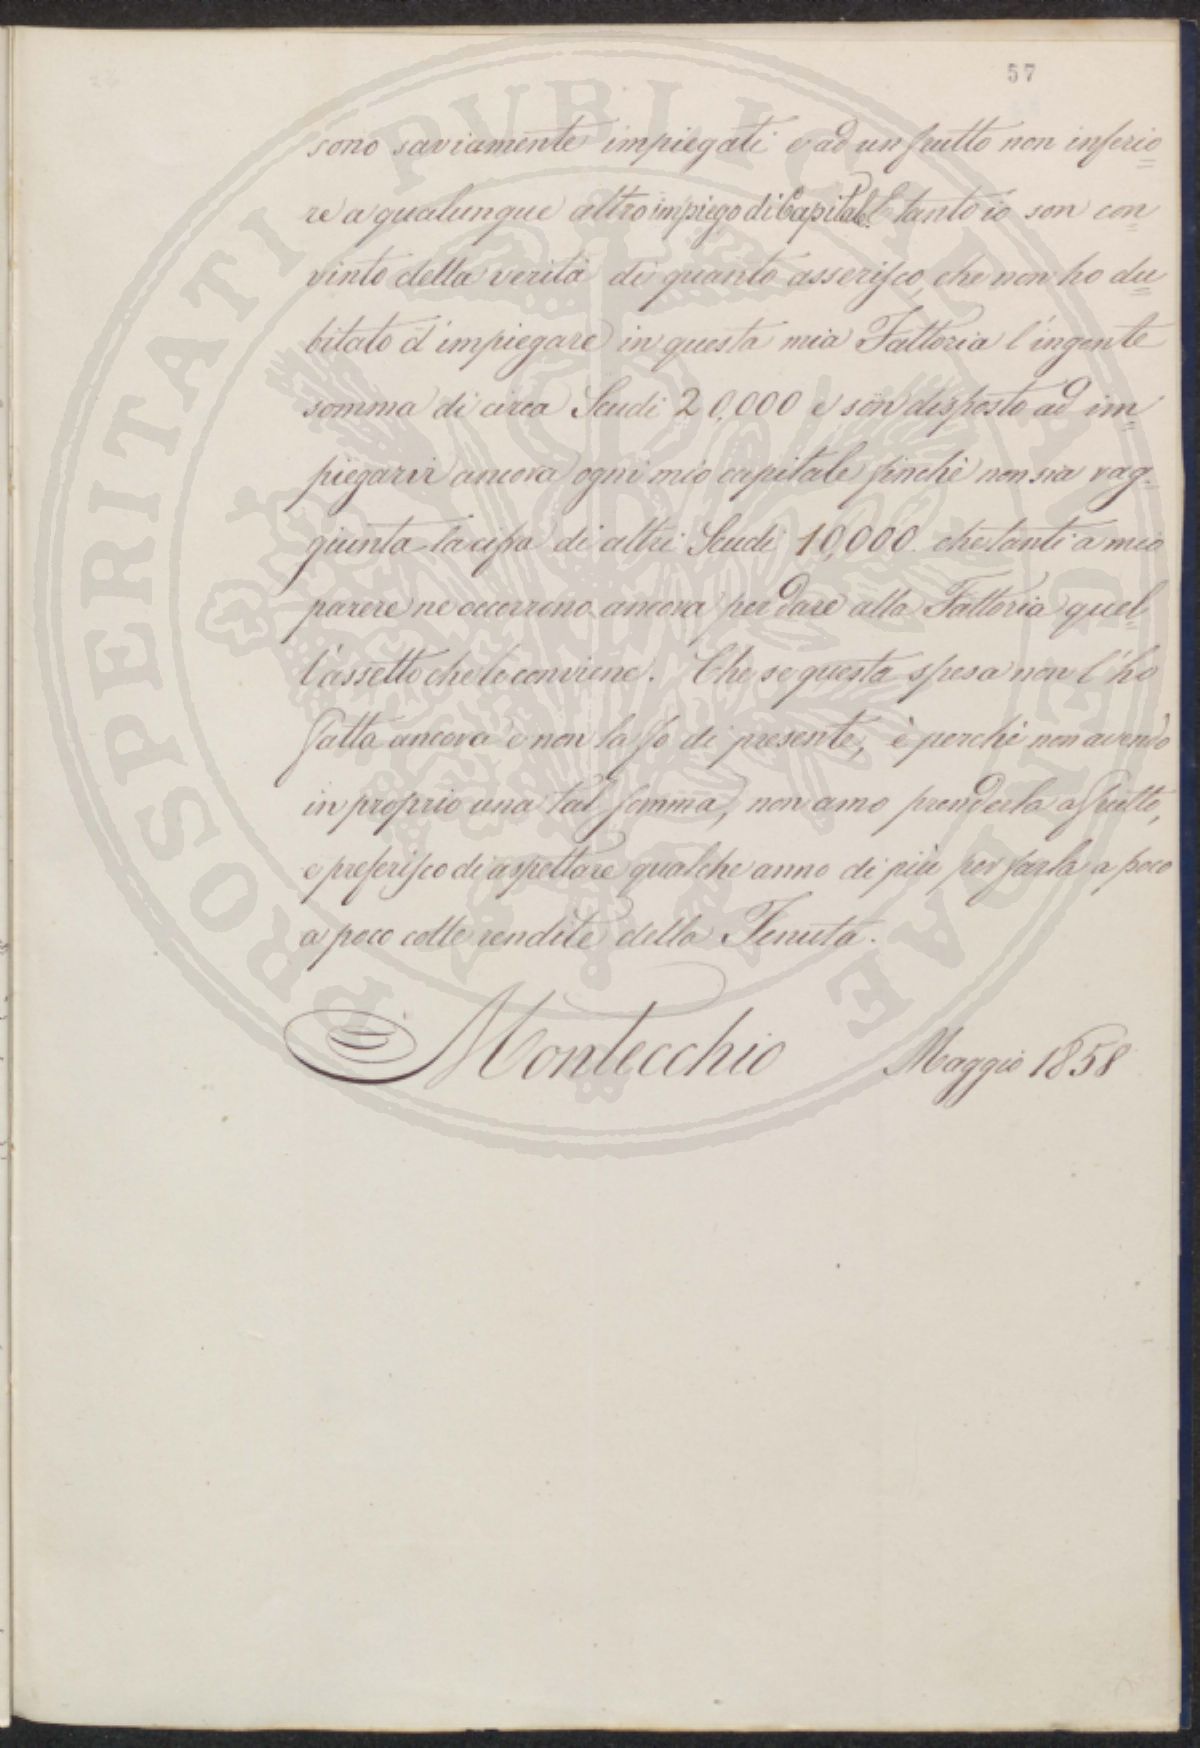 57
sono saviamente impiegati e ad un frutto non inferio=
re a qualunque altro impiego di Capitale. E tanto io son con=
vinto della verità di quanto asserisco, che non ho du=
bitato d'impiegare in questa mia Fattoria l'ingente
somma di circa Scudi 20,000 e son disposto ad im=
piegarvi ancora ogni mio capitale finchè non sia rag=
giunta la cifra di altri Scudi 10,000. che tanti a mio
parere ne occorrono ancora per dare alla Fattoria quel=
l'assetto che le conviene. Che se questa spesa non l'ho
fatta ancora e non la fo di presente, è perchè non avendo
in proprio una tal somma, non amo prenderla a frutto,
e preferisco di aspettare qualche anno di più per farla a poco
a poco colle rendite della Tenuta.
Montecchio Maggio 1858
PROSPERITATI PVBLICAE AVGENDAE